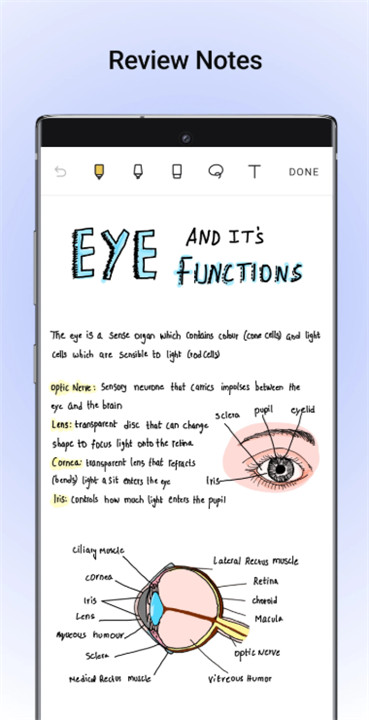 Review Notes
T
DONE
EYE AND IT's
FUNCTIONS
The eye is a sense organ which contains colour (cone cells) and light
cells which are sensible to light (rod cells)
Optic Nerve: Sensory neurone that carries impulses between the
eye and the brain
Lens: transparent disc that can change
shape to focus light onto the retina
Cornea: transparent lens that refracts
(bends) light a sit enters the eye
Iris: controls how much light enters the pupil
sclera pupil eyelid
Iris
Ciliary muscle
Cornea
Iris
Lens
Aqueous humour
Sclera
Medical Rectus muscle
Lateral Rectus muscle
Retina
choroid
Macula
Optic Nerve
Vitreous Humor